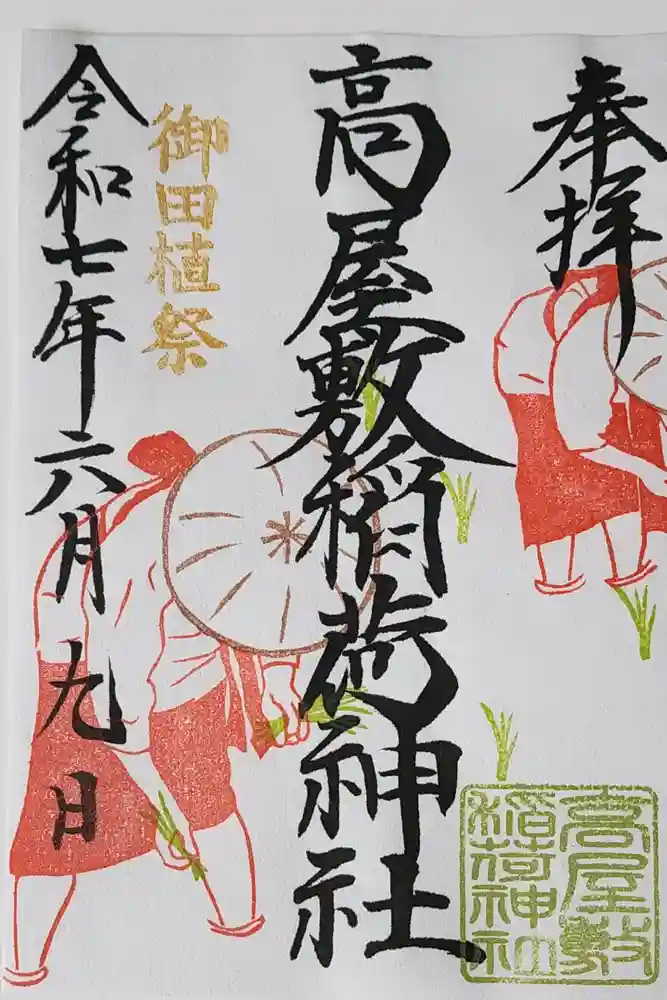 奉拝
高屋敷稲荷神社
高屋敷
稲荷神社
御田植祭
令和七年六月九日